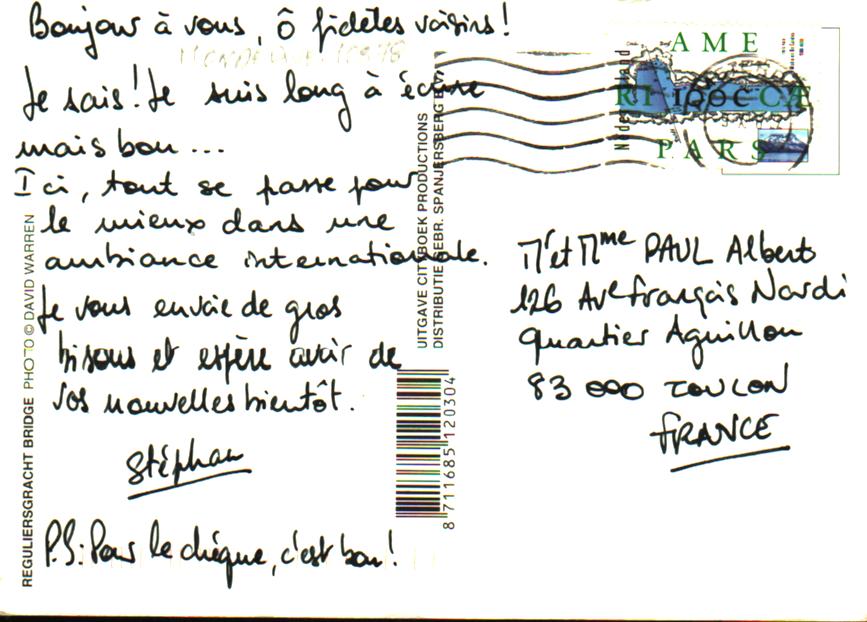 Bonjour à vous, ô fidèles voisins !
Je sais ! Je suis long à écrire
mais bon ...
Ici, tout se passe pour
le mieux dans une
ambiance internationale.
Je vous envoie de gros
bisous et espère avoir de
vos nouvelles bientôt.
Stéphan
P.S : Pour le chèque, c'est bon !
REGULIERSGRACHT BRIDGE PHOTO © DAVID WARREN
UITGAVE CITYBOEK PRODUCTIONS
DISTRIBUTIE GEBR. SPANJERSBERG B.V.
8 711685 120304
Nederland
AME
RI
PARS
Mr et Mme PAUL Albert
126 Ave François Nardi
Quartier Aguillon
83 000 TOULON
FRANCE